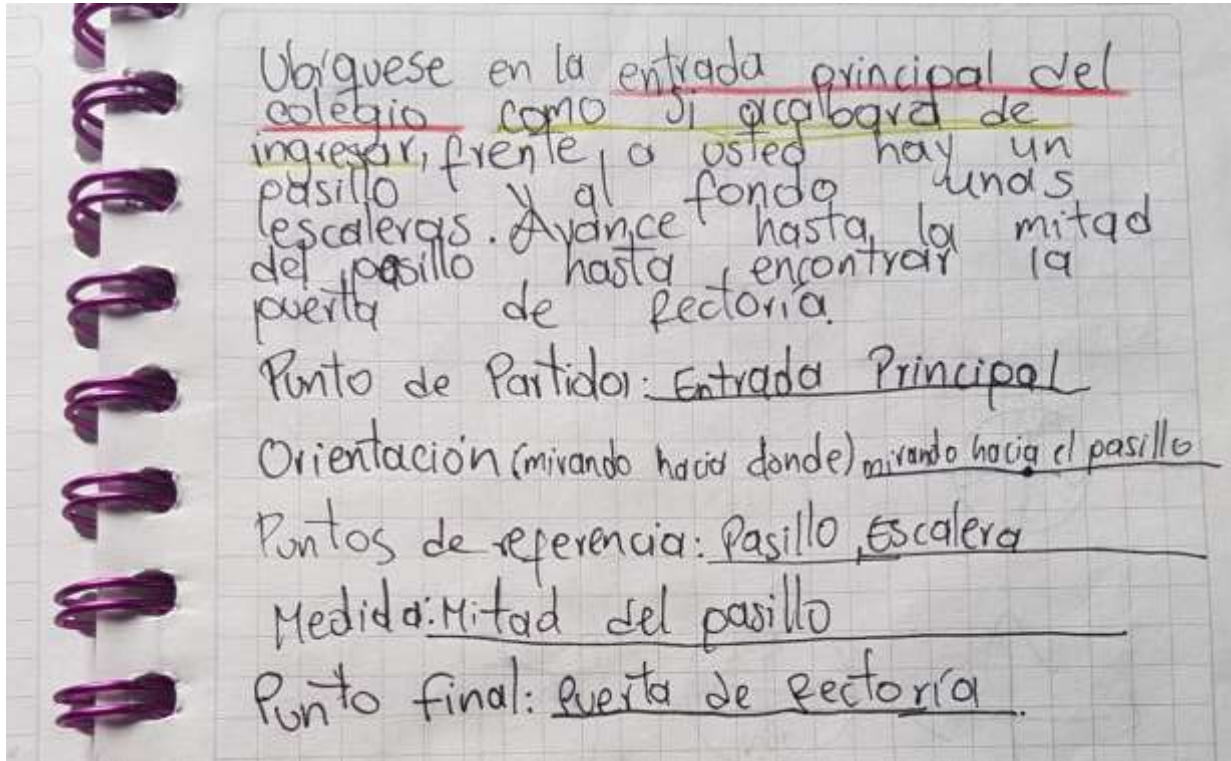 Ubíquese en la entrada principal del
colegio como si acabara de
ingresar, frente a usted hay un
pasillo y al fondo unas
escaleras. Avance hasta la mitad
del pasillo hasta encontrar la
puerta de Rectoría.
Punto de Partida: Entrada Principal
Orientación (mirando hacia donde) mirando hacia el pasillo
Puntos de referencia: Pasillo, Escalera
Medida: Mitad del pasillo
Punto final: Puerta de Rectoría.